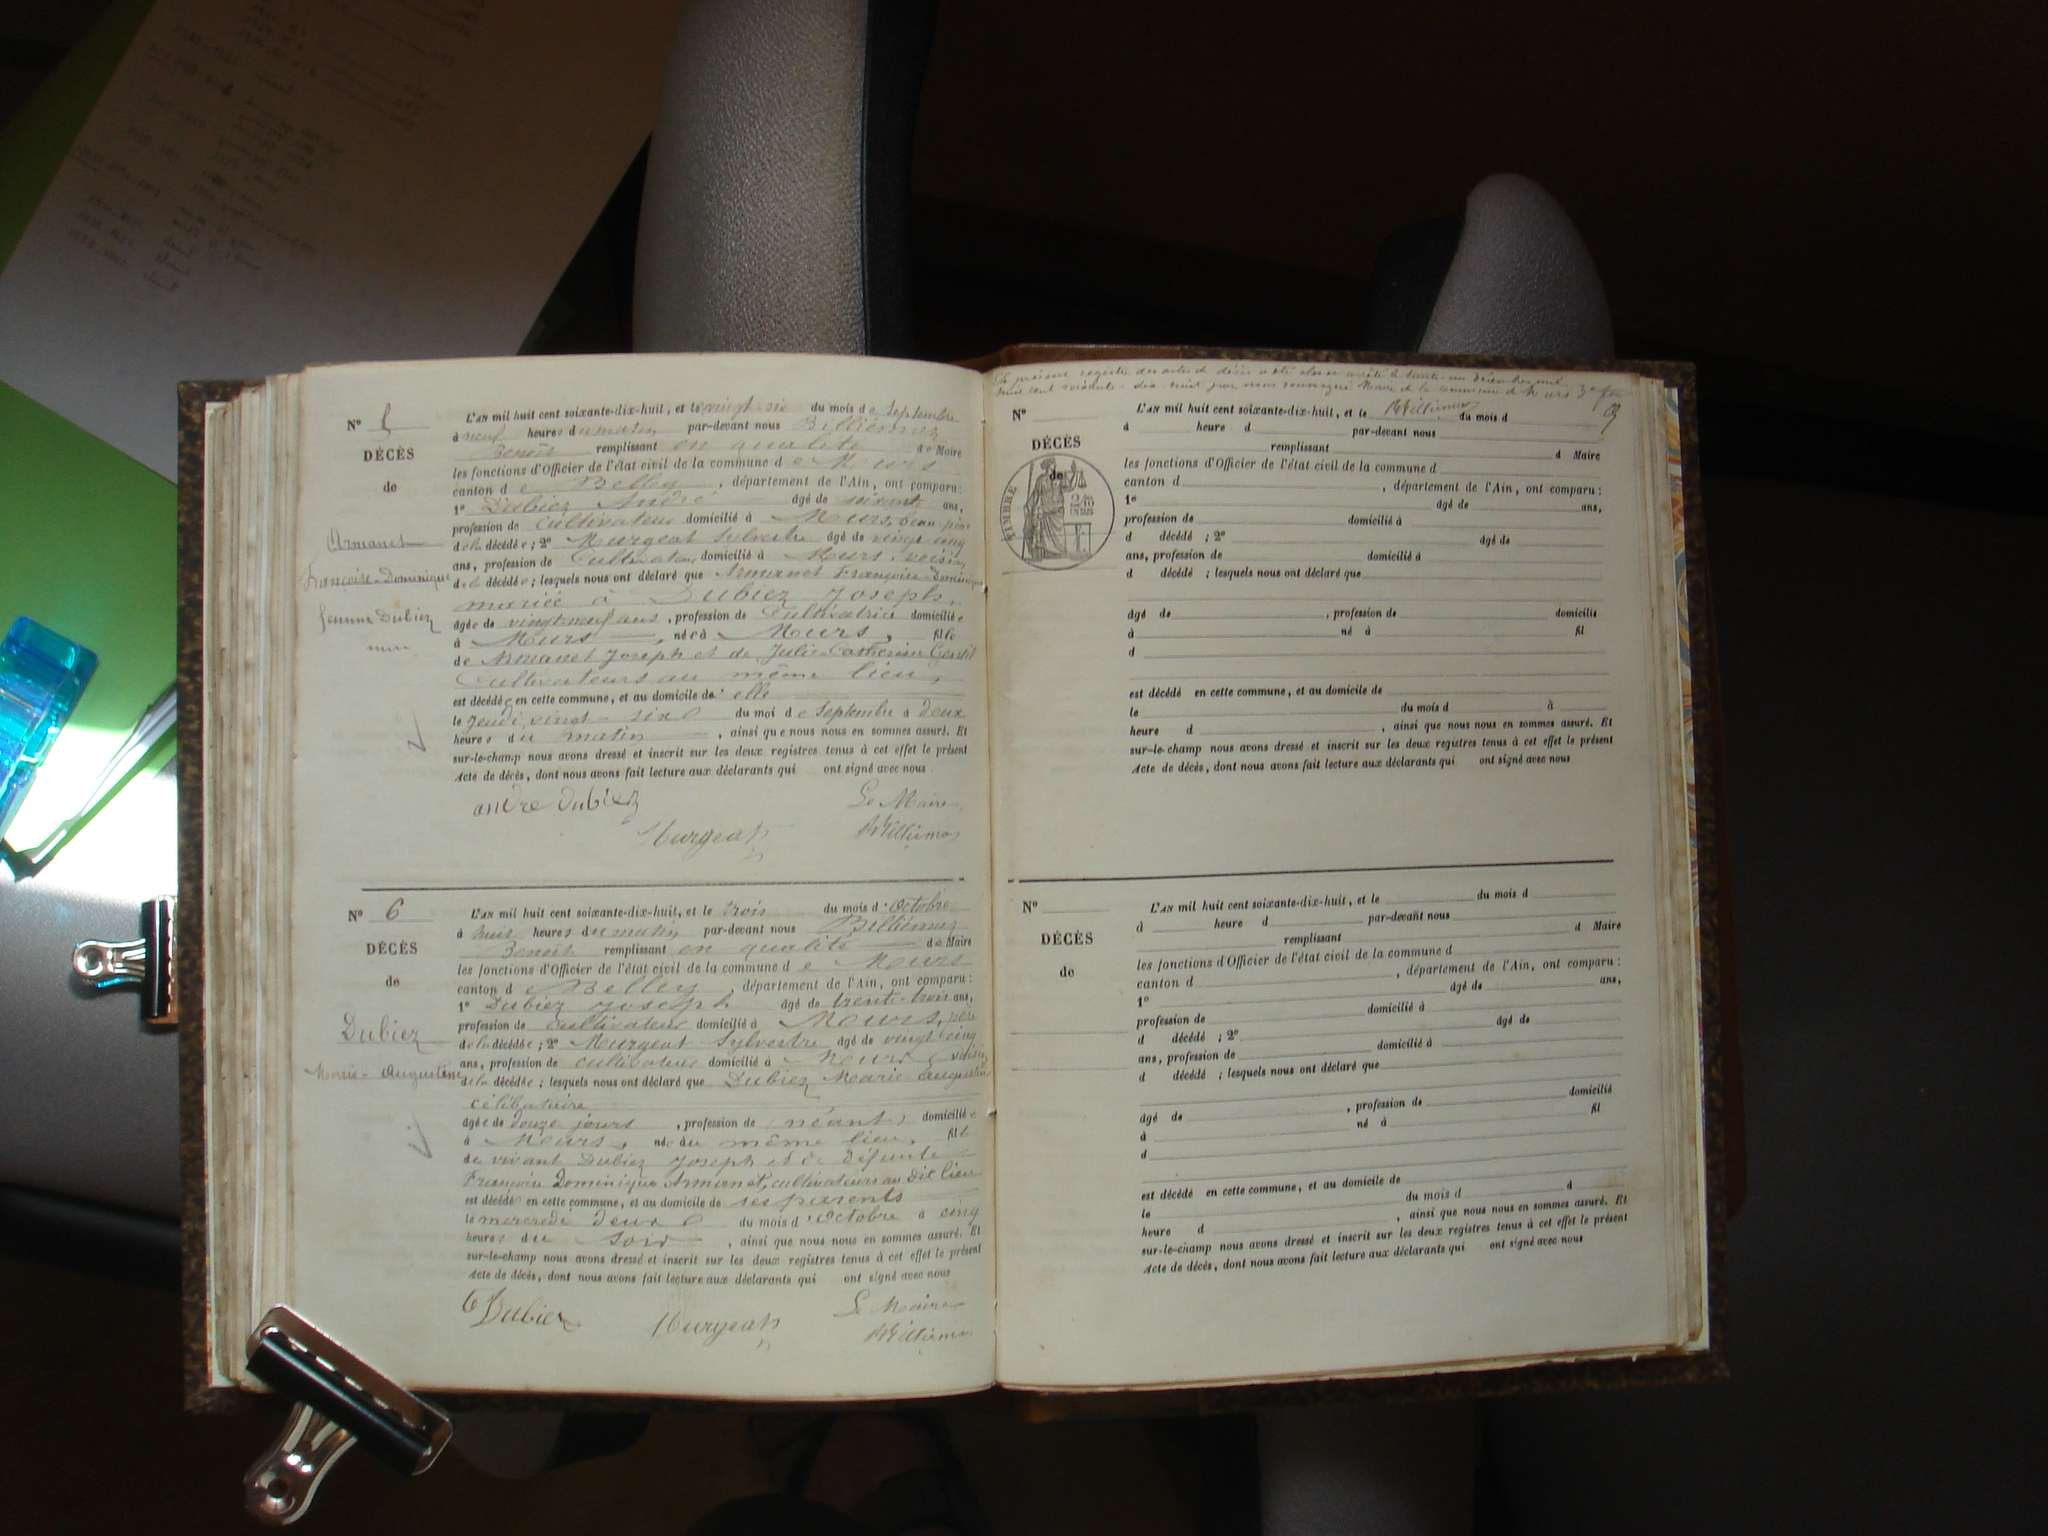 N° 5
DÉCÈS
de
Armanet
Françoise-Dominique
femme Dubiez
L'AN mil huit cent soixante-dix-huit, et le vingt-six du mois de Septembre
à neuf heures du matin par-devant nous Billiémaz
Benoît remplissant en qualité de Maire
les fonctions d'Officier de l'état civil de la commune de Meurs
canton de Belley, département de l'Ain, ont comparu :
1° Dubiez André âgé de soixante ans,
profession de cultivateur domicilié à Meurs, beau-père
de la décédée ; 2° Murgeat Sylvestre âgé de vingt-cinq
ans, profession de Cultivateur domicilié à Meurs, voisin
de la décédée ; lesquels nous ont déclaré que Armanet Françoise-Dominique
mariée à Dubiez Joseph,
âgée de vingt-neuf ans, profession de Cultivatrice domiciliée
à Meurs, née à Meurs, fille
de Armanet Joseph et de Julie Catherine Gentil
Cultivateurs au même lieu,
est décédée en cette commune, et au domicile d'elle
le jeudi vingt-six du moi de Septembre à deux
heures du matin, ainsi que nous nous en sommes assuré. Et
sur-le-champ nous avons dressé et inscrit sur les deux registres tenus à cet effet le présent
Acte de décès, dont nous avons fait lecture aux déclarants qui ont signé avec nous.
andre dubiez
Le Maire
Murgeat
Billiémaz
N° 6
DÉCÈS
de
Dubiez
Marie-Augustine
L'AN mil huit cent soixante-dix-huit, et le trois du mois d'Octobre
à huit heures du matin par-devant nous Billiémaz
Benoît remplissant en qualité de Maire
les fonctions d'Officier de l'état civil de la commune de Meurs
canton de Belley, département de l'Ain, ont comparu :
1° Dubiez Joseph âgé de trente-trois ans,
profession de cultivateur domicilié à Meurs, père
de la décédée ; 2° Murgeat Sylvestre âgé de vingt cinq
ans, profession de cultivateur domicilié à Meurs, voisin
de la décédée ; lesquels nous ont déclaré que Dubiez Marie Augustine
célibataire
âgée de douze jours, profession de (néant) domiciliée
à Meurs, née au même lieu, fille
de vivant Dubiez Joseph et de défunte
Françoise Dominique Armanet, cultivateurs au dit lieu
est décédé en cette commune, et au domicile de ses parents
le mercredi deux du mois d'Octobre à cinq
heures du soir, ainsi que nous nous en sommes assuré. Et
sur-le-champ nous avons dressé et inscrit sur les deux registres tenus à cet effet le présent
Acte de décès, dont nous avons fait lecture aux déclarants qui ont signé avec nous
Dubiez
Murgeat
Le Maire
Billiémaz
Le présent registre des actes de décès a été clos et arrêté le trente-un décembre mil
huit cent soixante-dix-huit par nous soussigné Maire de la commune de Meurs
Billiémaz
N°
DÉCÈS
de
TIMBRE
2/10
EN SUS
L'AN mil huit cent soixante-dix-huit, et le du mois d
à heure d par-devant nous
remplissant d Maire
les fonctions d'Officier de l'état civil de la commune d
canton d , département de l'Ain, ont comparu :
1° âgé de ans,
profession de domicilié à
d décédé ; 2° âgé de
ans, profession de domicilié à
d décédé ; lesquels nous ont déclaré que
âgé de , profession de domicilié
à né à fil
d
est décédé en cette commune, et au domicile de
le du mois d à
heure d , ainsi que nous nous en sommes assuré. Et
sur-le-champ nous avons dressé et inscrit sur les deux registres tenus à cet effet le présent
Acte de décès, dont nous avons fait lecture aux déclarants qui ont signé avec nous
N°
DÉCÈS
de
L'AN mil huit cent soixante-dix-huit, et le du mois d
à heure d par-devant nous
remplissant d Maire
les fonctions d'Officier de l'état civil de la commune d
canton d , département de l'Ain, ont comparu :
1° âgé de ans,
profession de domicilié à
d décédé ; 2° âgé de
ans, profession de domicilié à
d décédé ; lesquels nous ont déclaré que
âgé de , profession de domicilié
à né à fil
d
est décédé en cette commune, et au domicile de
le du mois d à
heure d , ainsi que nous nous en sommes assuré. Et
sur-le-champ nous avons dressé et inscrit sur les deux registres tenus à cet effet le présent
Acte de décès, dont nous avons fait lecture aux déclarants qui ont signé avec nous